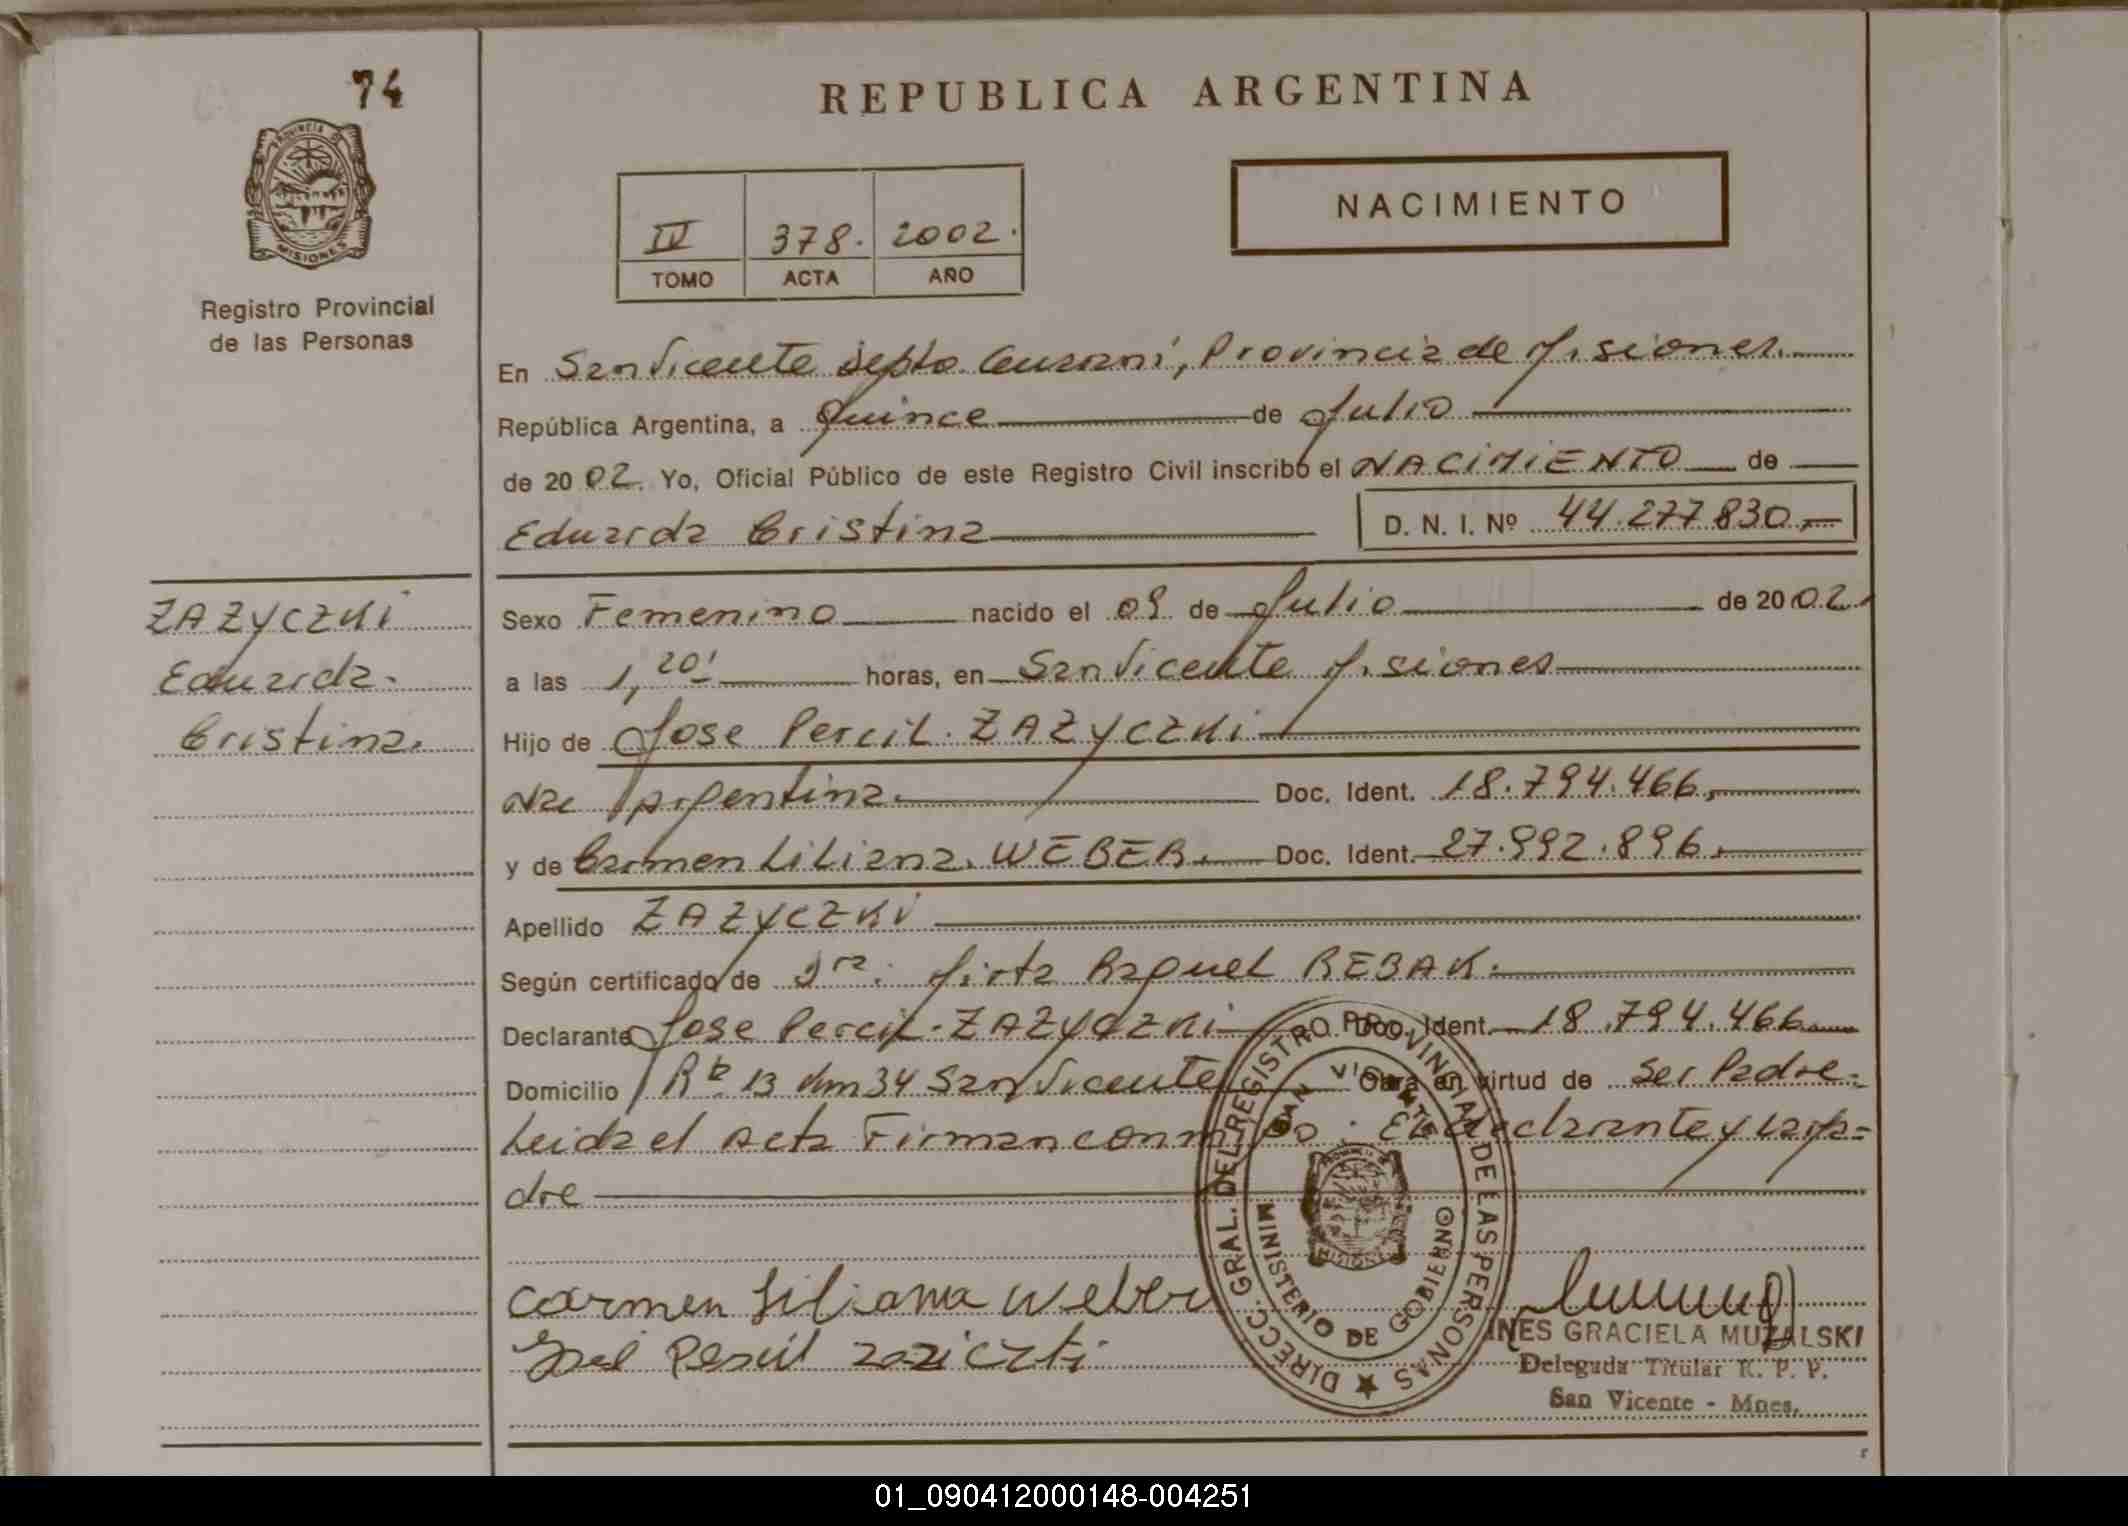 74
PROVINCIA DE
MISIONES
Registro Provincial
de las Personas
REPUBLICA ARGENTINA
IV 378. 2002.
TOMO ACTA AÑO
NACIMIENTO
En San Vicente Depto. Guaraní, Provincia de Misiones.
República Argentina, a Quince de Julio
de 2002. Yo, Oficial Público de este Registro Civil inscribo el NACIMIENTO de
Eduarda Cristina D. N. I. Nº 44.277.830,-
ZAZYCZKI
Eduarda.
Cristina.
Sexo Femenino nacido el 09 de Julio de 2002.
a las 1,20' horas, en San Vicente Misiones
Hijo de Jose Percil. ZAZYCZKI
Nac Argentina. Doc. Ident. 18.794.466,
y de Carmen Liliana. WEBER. Doc. Ident. 27.992.896.
Apellido ZAZYCZKI
Según certificado de Dra. Mirta Raquel REBAK.
Declarante Jose Percil. ZAZYCZKI Doc. Ident. 18.794.466
Domicilio Rta 13 Km 34 San Vicente Obra en virtud de Ser Padre.
Leida el Acta Firman conmigo. El declarante y la ma=
dre
Carmen Liliana Weber
José Persil zaziczki
DIRECC. GRAL. DEL REGISTRO PROVINCIAL DE LAS PERSONAS
SAN VICENTE
MISIONES
MINISTERIO DE GOBIERNO
INES GRACIELA MUZALSKI
Delegada Titular R. P. P.
San Vicente - Mnes.
01_090412000148-004251